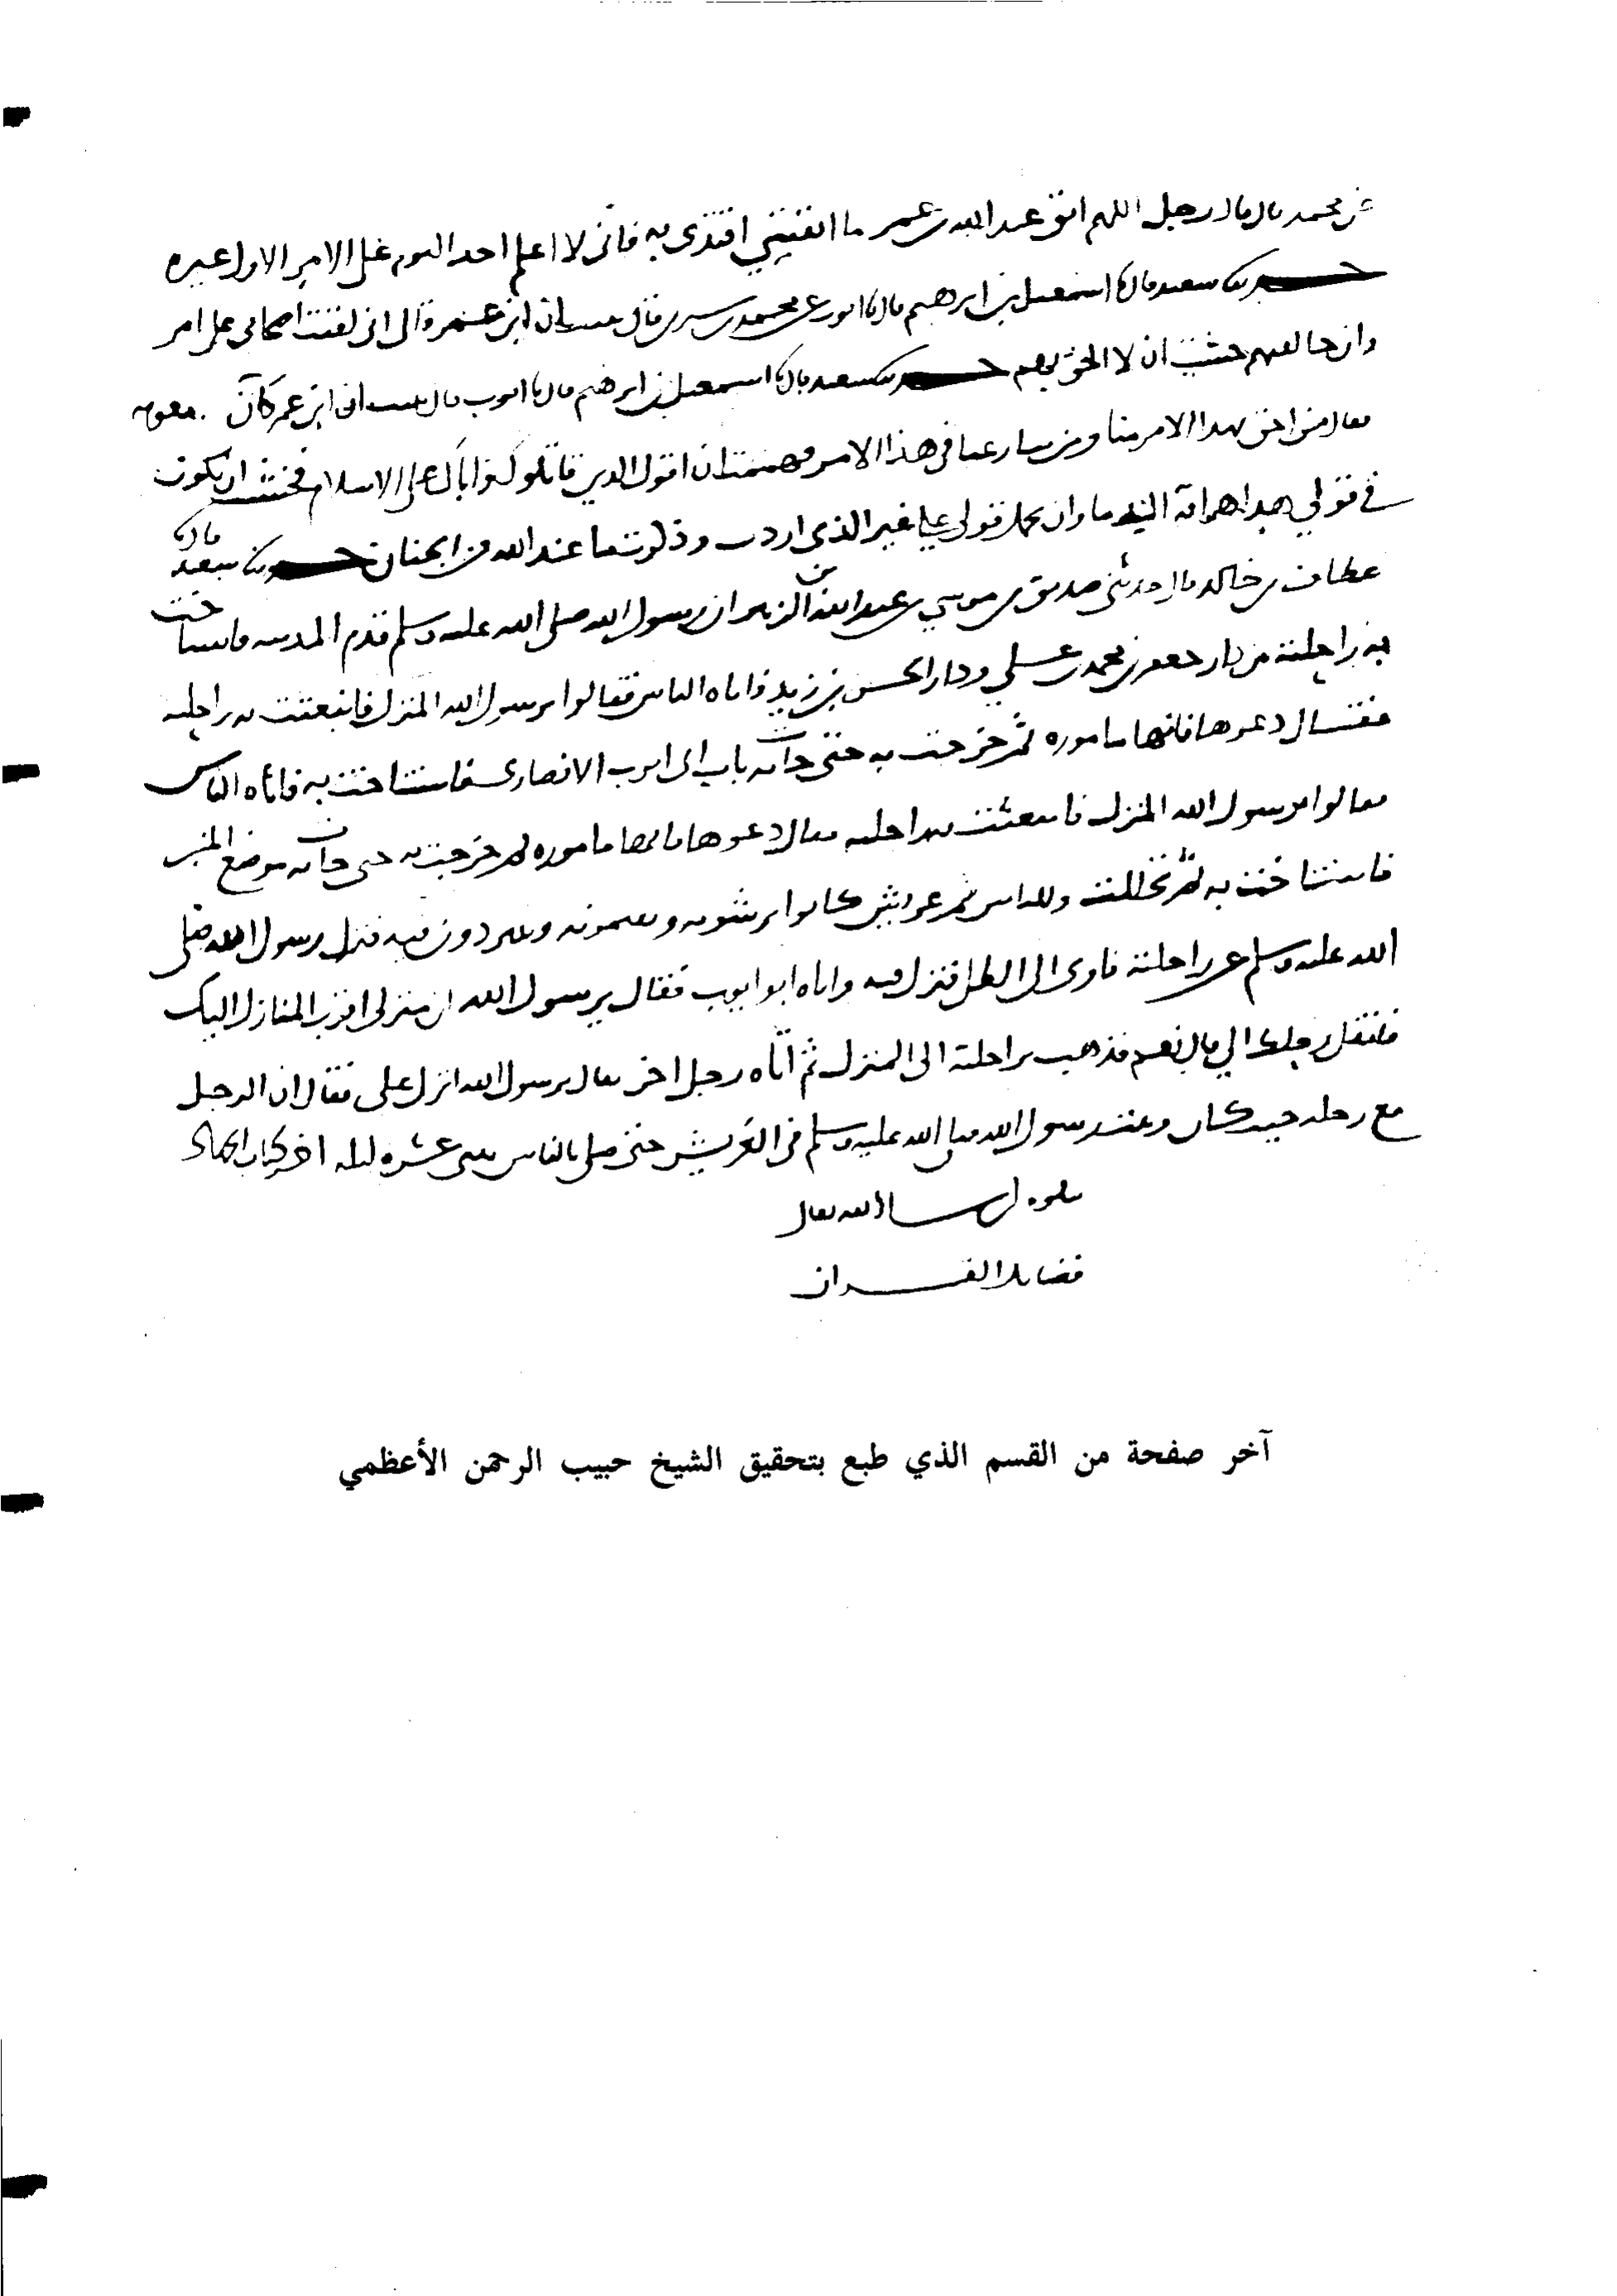 عن محمد قال قال رجل اللهم ابق عبد الله بن عمر ما ابقيتني اقتدي به فاني لا اعلم احد اليوم على الامر الاول غيره
حدثنا سعيد قال نا اسمعيل بن ابرهيم قال نا ايوب عن محمد بن سيرين قال نبئت ان ابن عمر قال اني لقيت اصحابي على امر
وان خالفتهم خشيت ان لا الحق بهم حدثنا سعيد قال نا اسمعيل بن ابرهيم قال نا ايوب قال نبئت ان ابن عمر كان معويه
فقال من احق بهذا الامر منا ومن ينازعنا في هذا الامر فهممت ان اقول الذين قاتلوك واباك على الاسلام فخشيت ان يكون
في قولي هراقة الدما وان يحمل قولي على غير الذي اردت وذكرت ما عند الله من الجنان حدثنا سعيد قال نا
عطاف بن خالد قال حدثني صديق بن موسى عن عبد الله بن الزبير ان رسول الله صلى الله عليه وسلم قدم المدينه فاستناخت
به راحلته بين دار جعفر بن محمد بن علي ودار الحسن بن زيد فاتاه الناس فقالوا يرسول الله المنزل فانبعثت به راحلته
فقال دعوها فانها ماموره ثم خرجت به حتى جات به باب ابي ايوب الانصاري فاستناخت به فاتاه الناس
فقالوا يرسول الله المنزل فانبعثت به راحلته فقال دعوها فانها ماموره ثم خرجت به حتى جات به موضع المنبر
فاستناخت به ثم تحللت وللناس ثم عريش كانوا يرشونه ويعمرونه ويتبردون فيه فنزل رسول الله صلى
الله عليه وسلم عن راحلته فاوى الى الظل فنزل فيه واتاه ابو ايوب فقال يرسول الله ان منزلي اقرب المنازل اليك
فانقل رحلك الي قال نعم فذهب براحلته الى المنزل ثم اتاه رجل اخر فقال يرسول الله انزل علي فقال ان الرجل
مع رحله حيث كان وثبت رسول الله صلى الله عليه وسلم في العريش حتى صلى بالناس ثنتي عشره ليله اخر كتاب الجهاد
يتلوه ان شا الله تعالى
فضايل القران
آخر صفحة من القسم الذي طبع بتحقيق الشيخ حبيب الرحمن الأعظمي